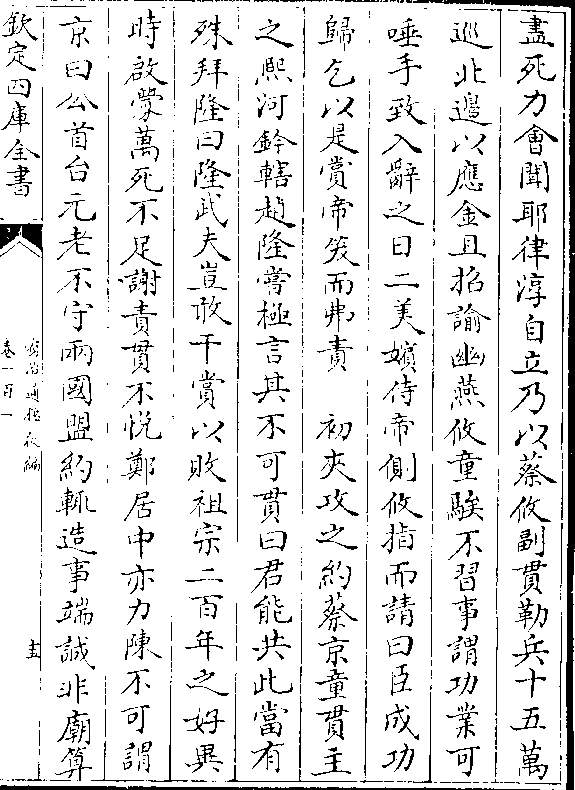 盡死力會聞耶律淳自立乃以蔡攸副貫勒兵十五萬
巡北邊以應金且招諭幽燕攸童騃不習事謂功業可
唾手致入辭之日二美嬪侍帝側攸指而請曰臣成功
歸乞以是賞帝笑而弗責　初夾攻之約蔡京童貫主
之熙河鈐轄趙隆嘗極言其不可貫曰君能共此當有
殊拜隆曰隆武夫豈敢干賞以敗祖宗二百年之好異
時啟蒙萬死不足謝責貫不悅鄭居中亦力陳不可謂
京曰公首台元老不守兩國盟約輒造事端誠非廟算
欽定四庫全書
資治通鑑後編
卷一百一